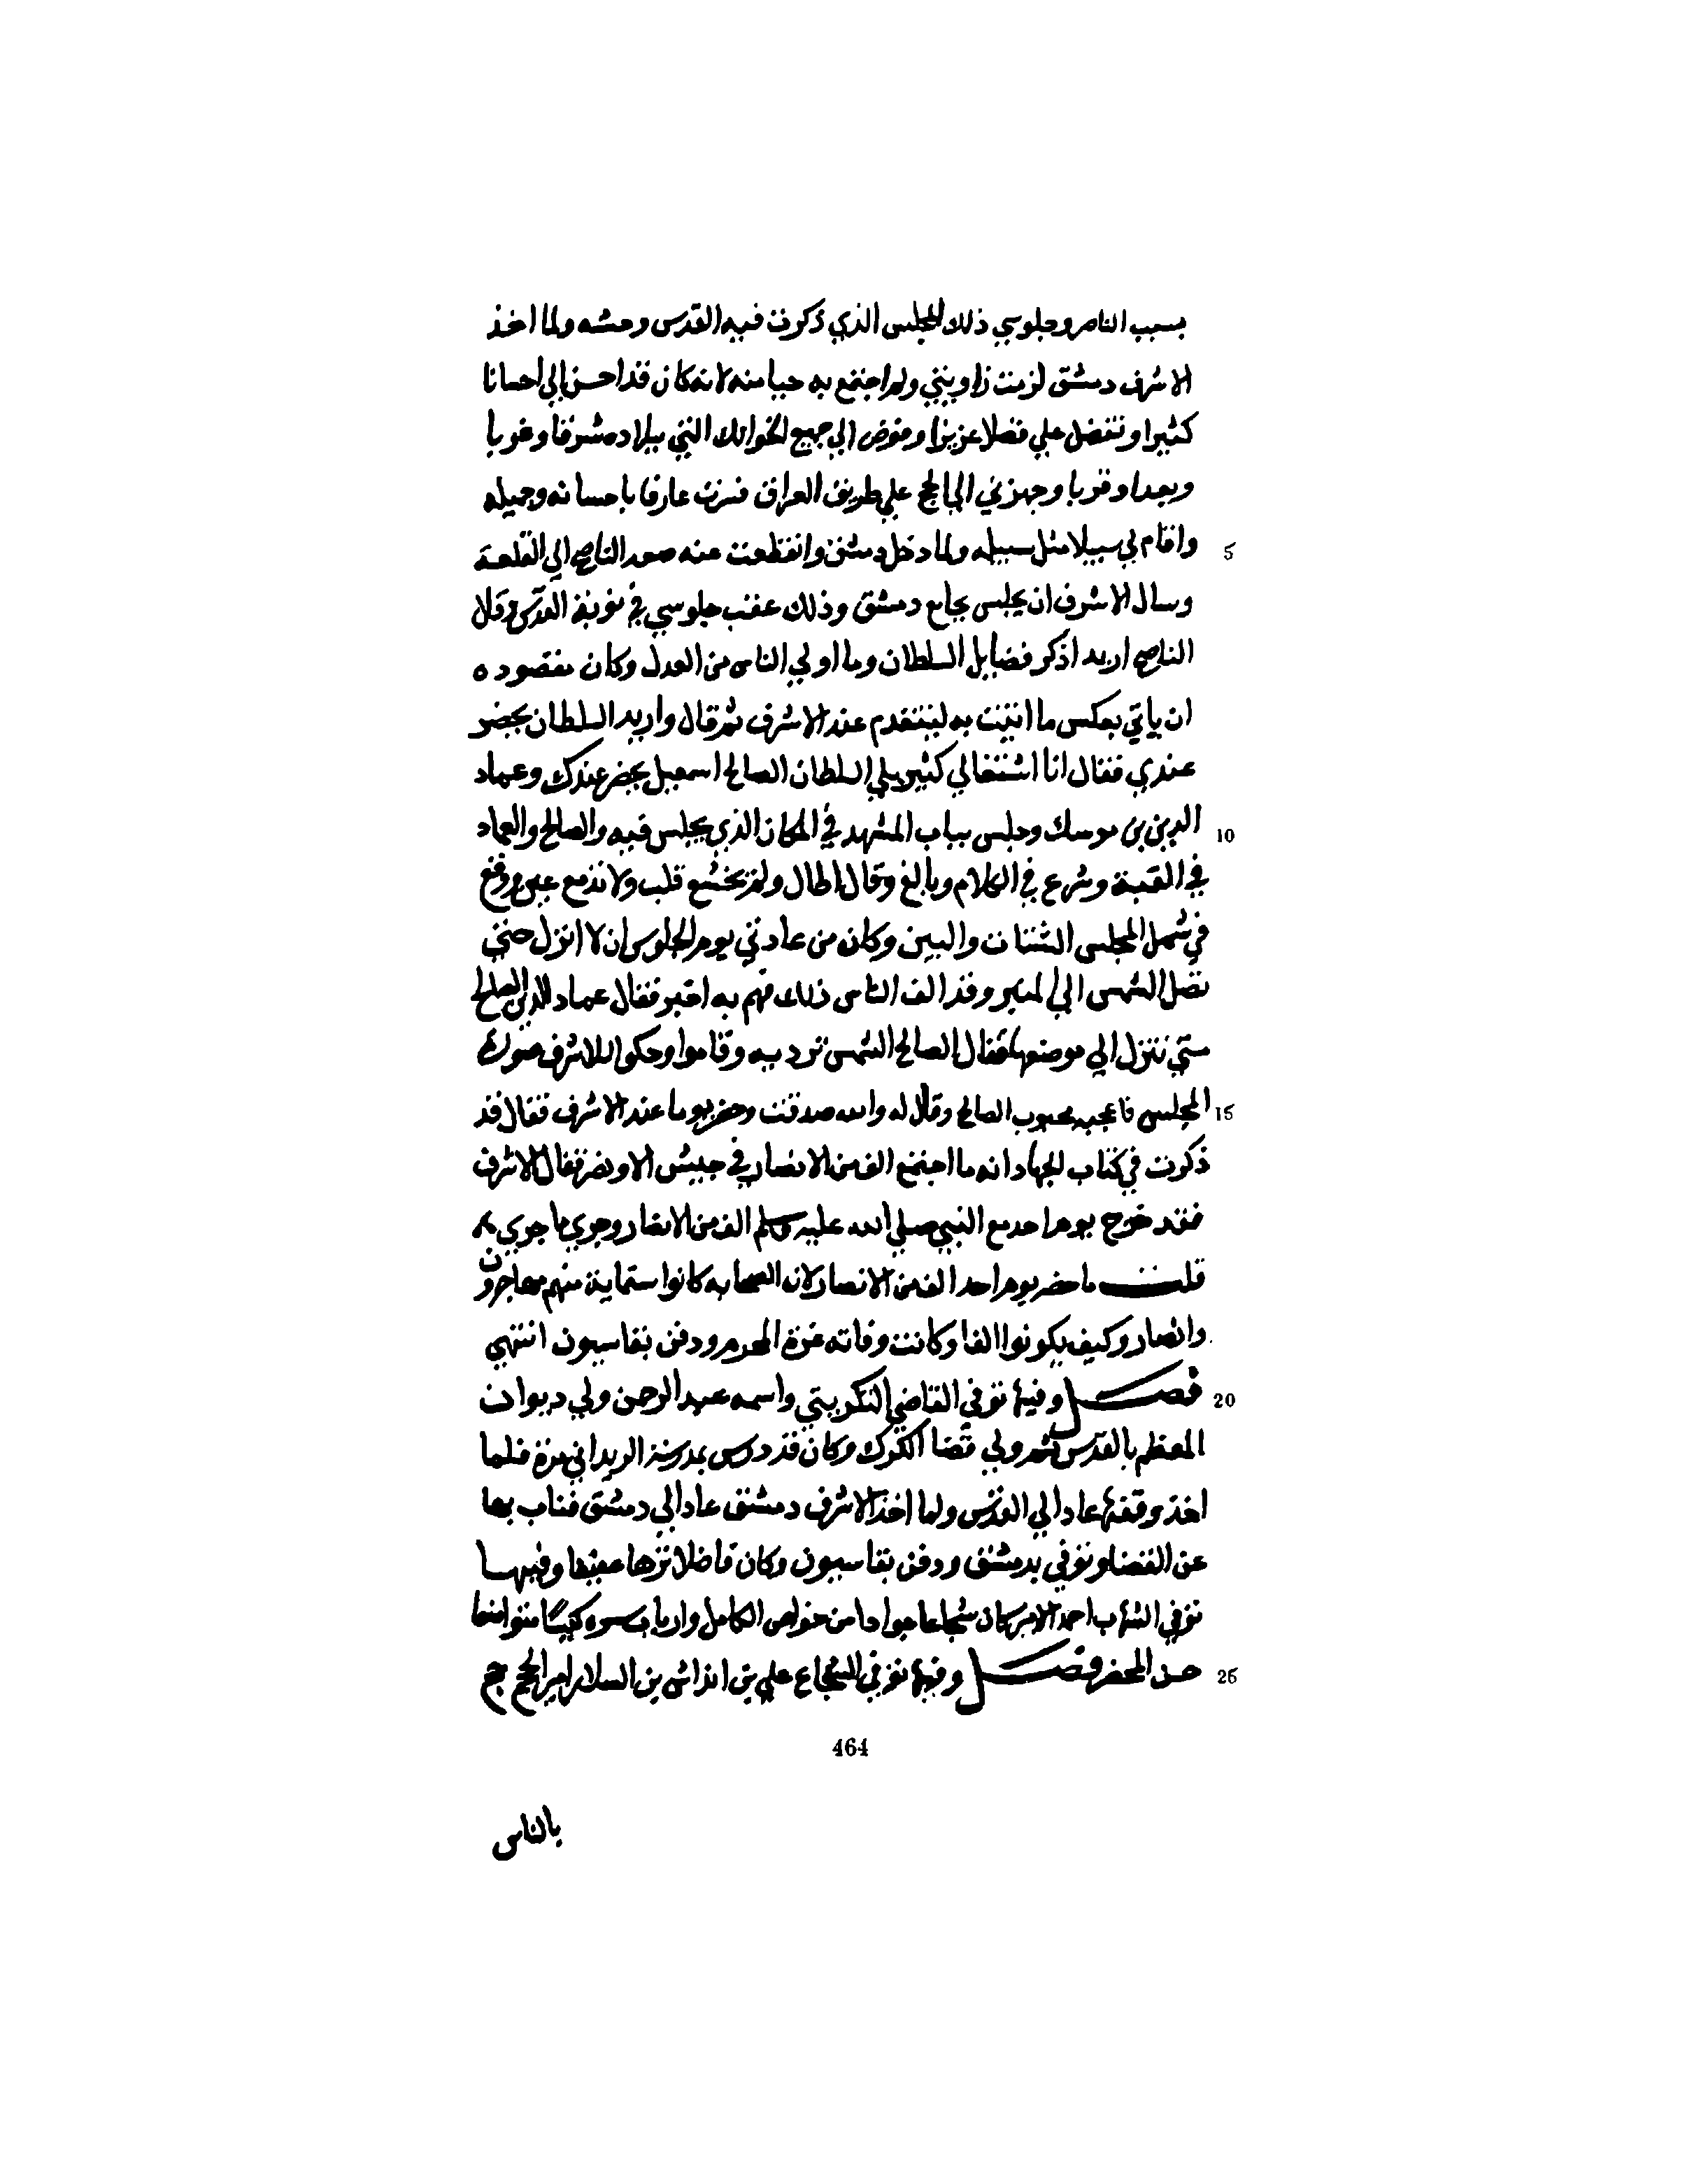 بسبب الناصر وجلوسي ذلك المجلس الذي ذكرت فيه القدس ومشه ولما اخذ
الاشرف دمشق لزمت زاويتي ولم اجتمع به حيا منه لانه كان قد احسن الي احسانا
كثيرا وتفضل علي فضلا عزيزا وفوض الي جميع الخوانك التي ببلاده شرقا وغربا
وبعدا وقربا وجهزني الي الحج علي طريق العراق فسرت عارفا باحسانه وجميله
5 واقام لي سبيلا مثل سبيله ولما دخل دمشق وانقطعت عنه صعد الناصح الي القلعة
وسال الاشرف ان يجلس بجامع دمشق وذلك عقب جلوسي في نوبة القدس وقال
الناصح اريد اذكر فضايل السلطان وما اولي الناس من العدل وكان مقصوده
ان ياتي بعكس ما اتيت به ليتقدم عند الاشرف ثم قال واريد السلطان يحضر
عندي فقال انا اشتغالي كثير بلي السلطان الصالح اسمعيل يحضر عندك وعماد
10 الدين بن موسك وجلس بباب المشهد في المكان الذي يجلس فيه والصالح والعماد
في القبة وشرع في الكلام وبالغ وقال اطال ولم يخشع قلب ولا تدمع عين ووقع
في شمل المجلس الشتات والبين وكان من عادتي يوم الجلوس ان لا انزل حتي
تصل الشمس الي المنبر وقد الف الناس ذلك فهم به اخبر فقال عماد الدين للصالح
متي تنزل الي موضعها فقال الصالح الشمس ترد بيه وقاموا وحكوا للاشرف صورة
15 المجلس فاعجبه محبوب الصالح وقال له والله صدقت وحضر يوما عند الاشرف فقال قد
ذكرت في كتاب الجهاد انه ما اجتمع الف من الانصار في جيش الا ونصر فقال الاشرف
فقد خرج يوم احد مع النبي صلي الله عليه وسلم الف من الانصار وجري ما جري
قلت ما حضر يوم احد الف من الانصار لان الصحابه كانوا ستماية منهم مهاجرون
وانصار وكيف يكونوا الفا وكانت وفاته غرة المحرم ودفن بقاسيون انتهي
20 فصل وفيها توفي القاضي التكريتي واسمه عبد الرحمن ولي ديوان
المعظم بالقدس ثم ولي قضا الكرك وكان قد درس بمدرسة الزبداني مرة فلما
اخذ وقفها عاد الي القدس ولما اخذ الاشرف دمشق عاد الي دمشق فناب بها
عن القضا وتوفي بدمشق ودفن بقاسيون وكان فاضلا نزها عفيفا وفيها
توفي الشهاب احمد الامير كان شجاعا جوادا من خواص الكامل وارباب سره وكيسا متواضعا
25 حسن المحضر فصل وفيها توفي الشجاع علي بن ابن السلار امير الحج حج
464
بالناس